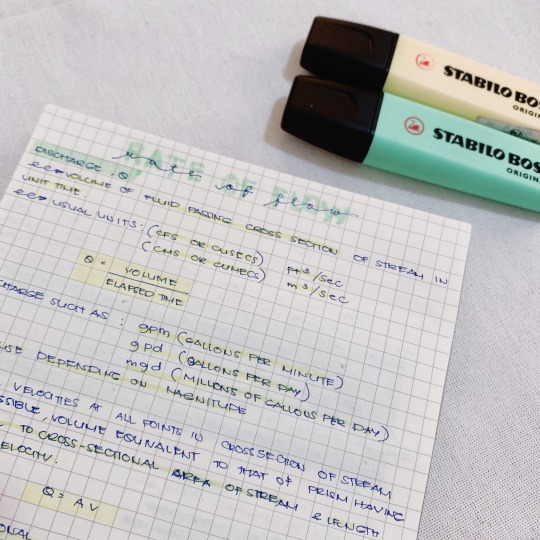 STABILO BOS
ORIGIN
STABILO BOS
ORIGINA
RATE OF FLOW
rate of flow
DISCHARGE, Q
VOLUME OF FLUID PASSING CROSS SECTION OF STREAM IN
UNIT TIME
USUAL UNITS: (CFS OR CUSECS) ft³/sec
(CMS OR CUMECS) m³/sec
Q = VOLUME
ELAPSED TIME
CHARGE SUCH AS : gpm (GALLONS PER MINUTE)
gpd (GALLONS PER DAY)
mgd (MILLIONS OF GALLONS PER DAY)
USE DEPENDING ON MAGNITUDE
VELOCITIES AT ALL POINTS IN CROSS SECTION OF STREAM
SSIBLE, VOLUME EQUIVALENT TO THAT OF PRISM HAVING
TO CROSS-SECTIONAL AREA OF STREAM & LENGTH
ELOCITY:
Q = AV
ONAL